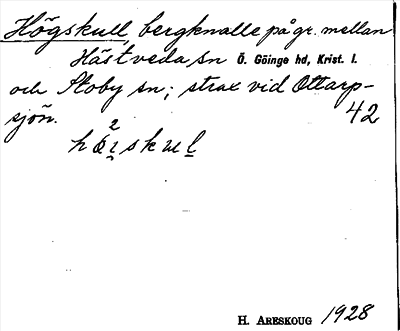 Högskull, bergknalle på gr. mellan
Hästveda sn Ö. Göinge hd, Krist. l.
och Stoby sn; strax vid Ottarp-
sjön. 42
2
H. ARESKOUG 1928